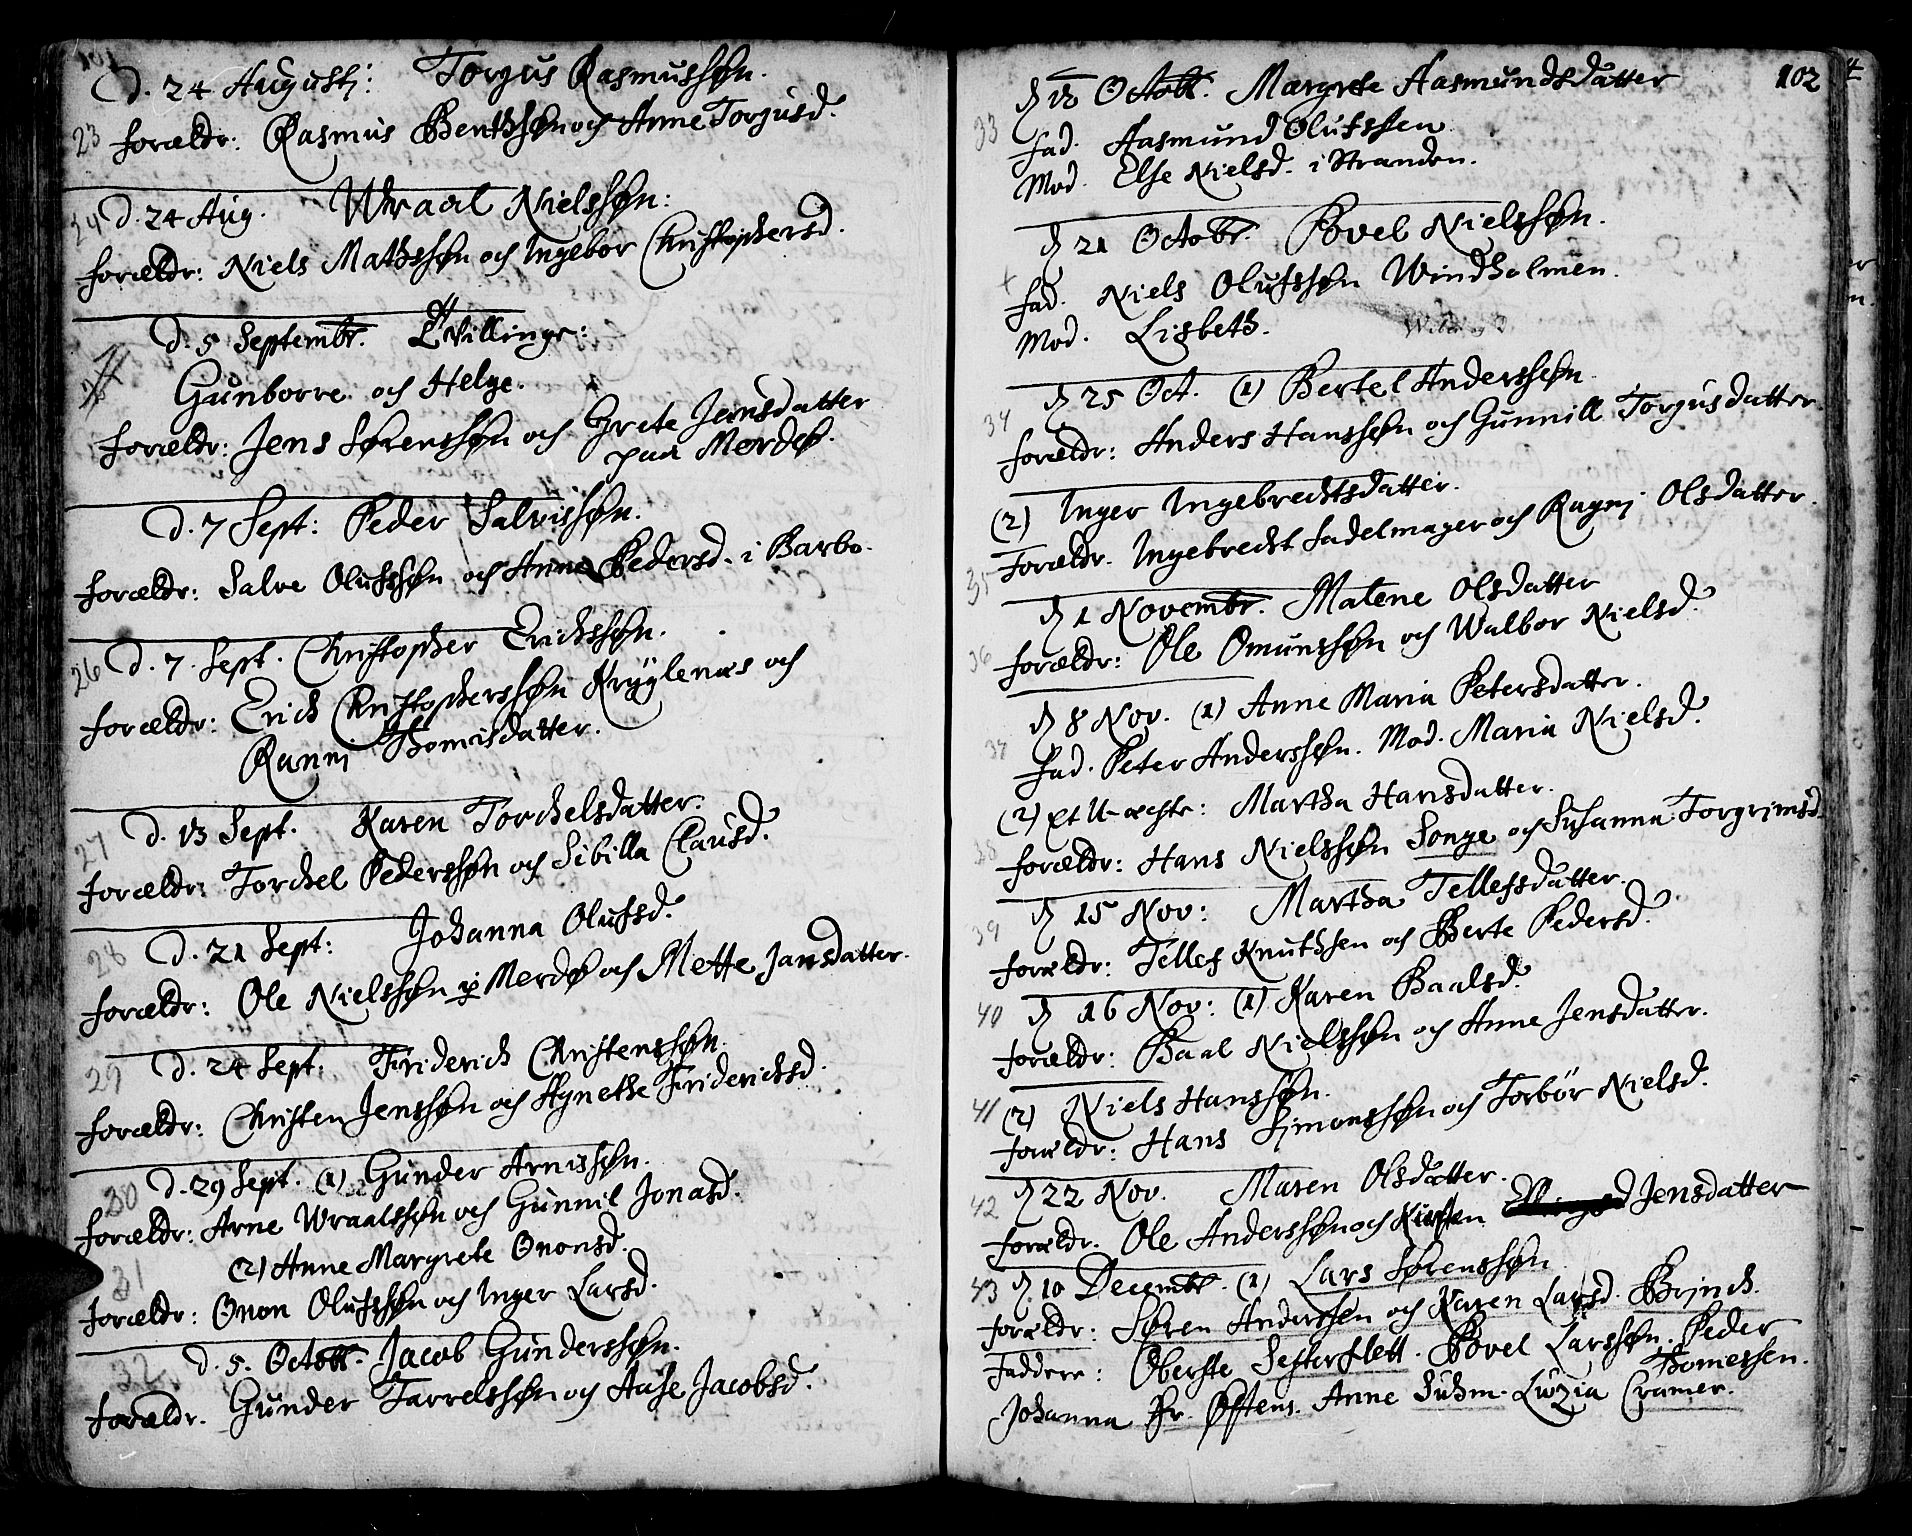 101
D. 24 Augustj: Torgus Rasmussøn.
23 forældr: Rasmus Benthsøn och Anne Torgusd.
24 D. 24 Aug. Wraal Nielssøn:
forældr: Niels Mathssøn och Ingebor Christophersd.
D. 5 Septembr. Tvillinge:
Gunborre och Helge.
forældr: Jens Sørenssøn och Grete Jensdatter
paa Merdø.
D. 7 Sept: Peder Salvissøn.
forældr: Salve Olufssøn och Anne Pedersd. i Barbo.
26 D. 7. Sept. Christopher Erichssøn.
forældr: Erich Christopherssøn Krøglenæs och
Rannj Thomisdatter.
27 D. 13 Sept. Karen Torchelsdatter.
forældr: Torchel Pederssøn och Sibilla Clausd.
28 D. 21 Sept: Johanna Olufsd.
forældr: Ole Nielssøn p Merdø och Mette Jansdatter.
29 D. 24 Sept: Friderich Christenssøn.
forældr: Christen Jenssøn och Agnethe Friderichsd.
30 D. 29 Sept. (1) Gunder Arnissøn.
forældr: Arne Wraalssøn och Gunnil Jonasd.
31 (2) Anne Margrete Ononsd.
forældr: Onon Olufssøn och Inger Larsd.
32 D. 5. Octobr. Jacob Gunderssøn.
forældr. Gunder Tarrelssøn och Aase Jacobsd.
102
33 D 12 Octobr. Margrete Aasmundsdatter
fad. Aasmund Olufssen
Mod. Else Nielsd. i Stranden.
D 21 Octobr. Povel Nielssøn.
fad. Niels Olufssøn Windholmen.
Mod. Lisbeth.
34 D 25 Oct. (1) Bertel Anderssøn.
forældr: Anders Hanssøn och Gunnill Torgusdatter.
(2) Inger Ingebrechtsdatter.
35 Forældr. Ingebrecht Sadelmager och Ragnj Olsdatter.
D 1 Novembr. Malene Olsdatter
36 forældr: Ole Omunssøn och Walbor Nielsd.
37 D 8 Nov. (1) Anne Maria Petersdatter.
Fad. Peter Anderssøn. Mod. Maria Nielsd.
(2) et U-æchte: Martha Hansdatter.
38 forældr: Hans Nielssøn Songe och Susanna Torgrimsd.
39 D 15 Nov: Martha Tellefsdatter.
forældr: Tellef Knuthsen och Berte Pedersd.
40 D 16 Nov: (1) Karen Baalsd.
forældr: Baal Nielssøn och Anne Jensdatter.
41 (2) Niels Hanssøn.
forældr: Hans Simonssøn och Torbor Nielsd.
42 D 22 Nov. Maren Olsdatter.
forældr. Ole Anderssøn och Kirsten Jensdatter
43 D. 10 Decembr. (1) Lars Sørenssøn
forældr: Søren Anderssen och Karen Larsd. Brinch.
Faddere: Oberste Sesterflett. Povel Larssøn. Peder
Thomessen.
Johanna Hr. Østens. Anne Suhm. Luzia Cramer.